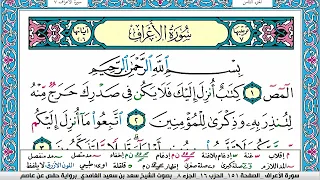 سُورَةُ الأَعْرَافِ
بِسْمِ اللَّهِ الرَّحْمَٰنِ الرَّحِيمِ
الٓمٓصٓ ١ كِتَٰبٌ أُنزِلَ إِلَيْكَ فَلَا يَكُن فِى صَدْرِكَ حَرَجٌ مِّنْهُ
لِتُنذِرَ بِهِۦ وَذِكْرَىٰ لِلْمُؤْمِنِينَ ٢ ٱتَّبِعُوا۟ مَآ أُنزِلَ إِلَيْكُم
سورة الأعراف الصفحة ١٥١ الحزب ١٦ الجزء ٨ بصوت الشيخ سعد بن سعيد الغامدي برواية حفص عن عاصم